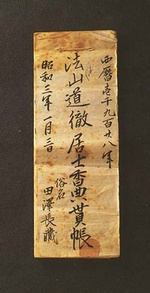 西暦壱千九百廿八年
法山道徹居士香奠貰帳
昭和三年一月三日
俗名
田澤長蔵